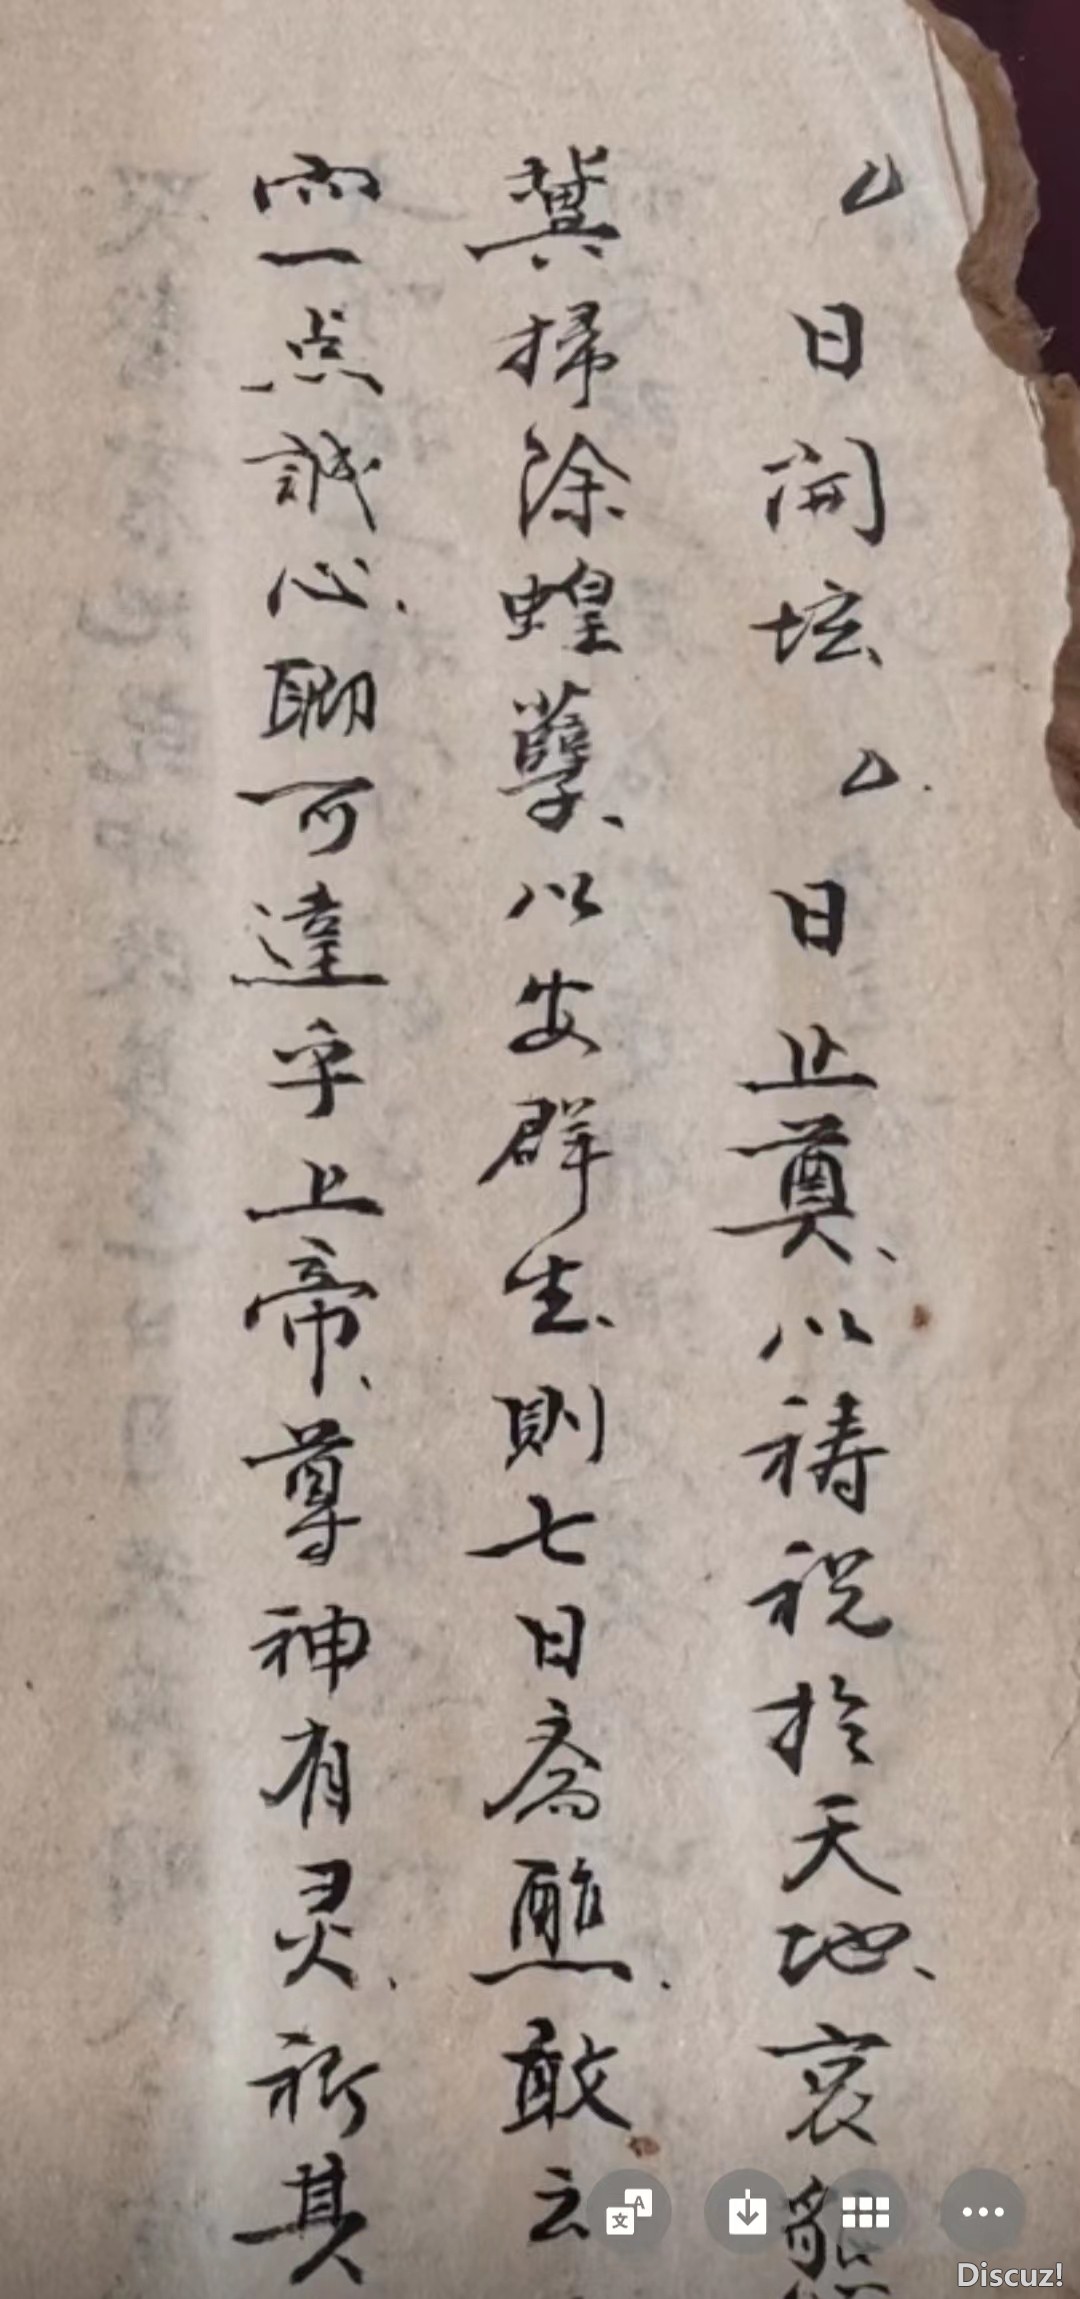 厶日開坛、厶日止奠、以祷祝扵天地、哀
冀掃除蝗孽、以安群生、則七日斋醮.敢云
而一点誠心.聊可達乎上帝、尊神有灵.祈其
Discuz!